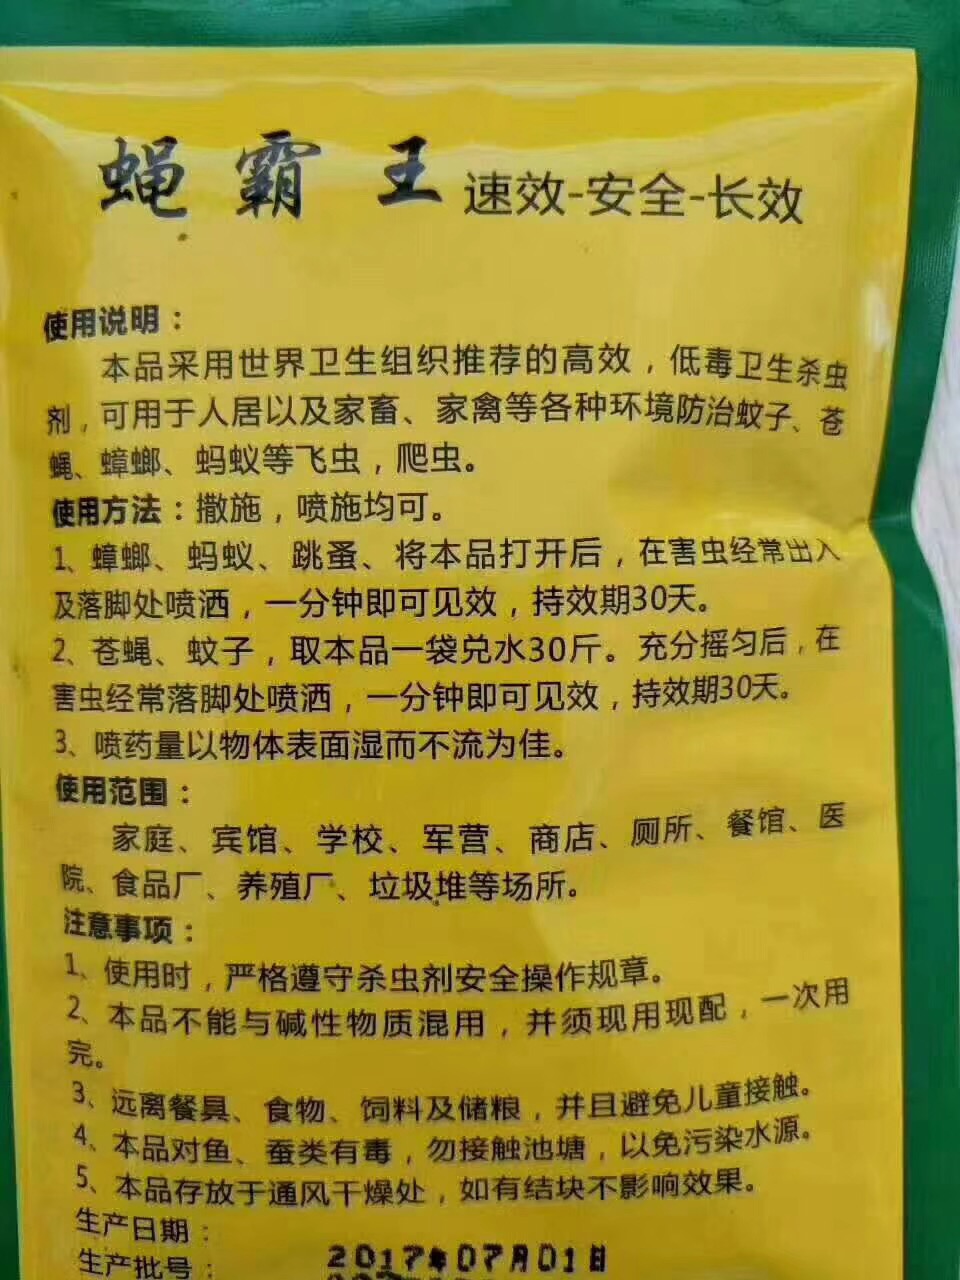 蝇霸王 速效-安全-长效
使用说明：
本品采用世界卫生组织推荐的高效，低毒卫生杀虫
剂，可用于人居以及家畜、家禽等各种环境防治蚊子、苍
蝇、蟑螂、蚂蚁等飞虫，爬虫。
使用方法：撒施，喷施均可。
1、蟑螂、蚂蚁、跳蚤、将本品打开后，在害虫经常出入
及落脚处喷洒，一分钟即可见效，持效期30天。
2、苍蝇、蚊子，取本品一袋兑水30斤。充分摇匀后，在
害虫经常落脚处喷洒，一分钟即可见效，持效期30天。
3、喷药量以物体表面湿而不流为佳。
使用范围：
家庭、宾馆、学校、军营、商店、厕所、餐馆、医
院、食品厂、养殖厂、垃圾堆等场所。
注意事项：
1、使用时，严格遵守杀虫剂安全操作规章。
2、本品不能与碱性物质混用，并须现用现配，一次用
完。
3、远离餐具、食物、饲料及储粮，并且避免儿童接触。
4、本品对鱼、蚕类有毒，勿接触池塘，以免污染水源。
5、本品存放于通风干燥处，如有结块不影响效果。
生产日期：
生产批号：
2017年07月01日